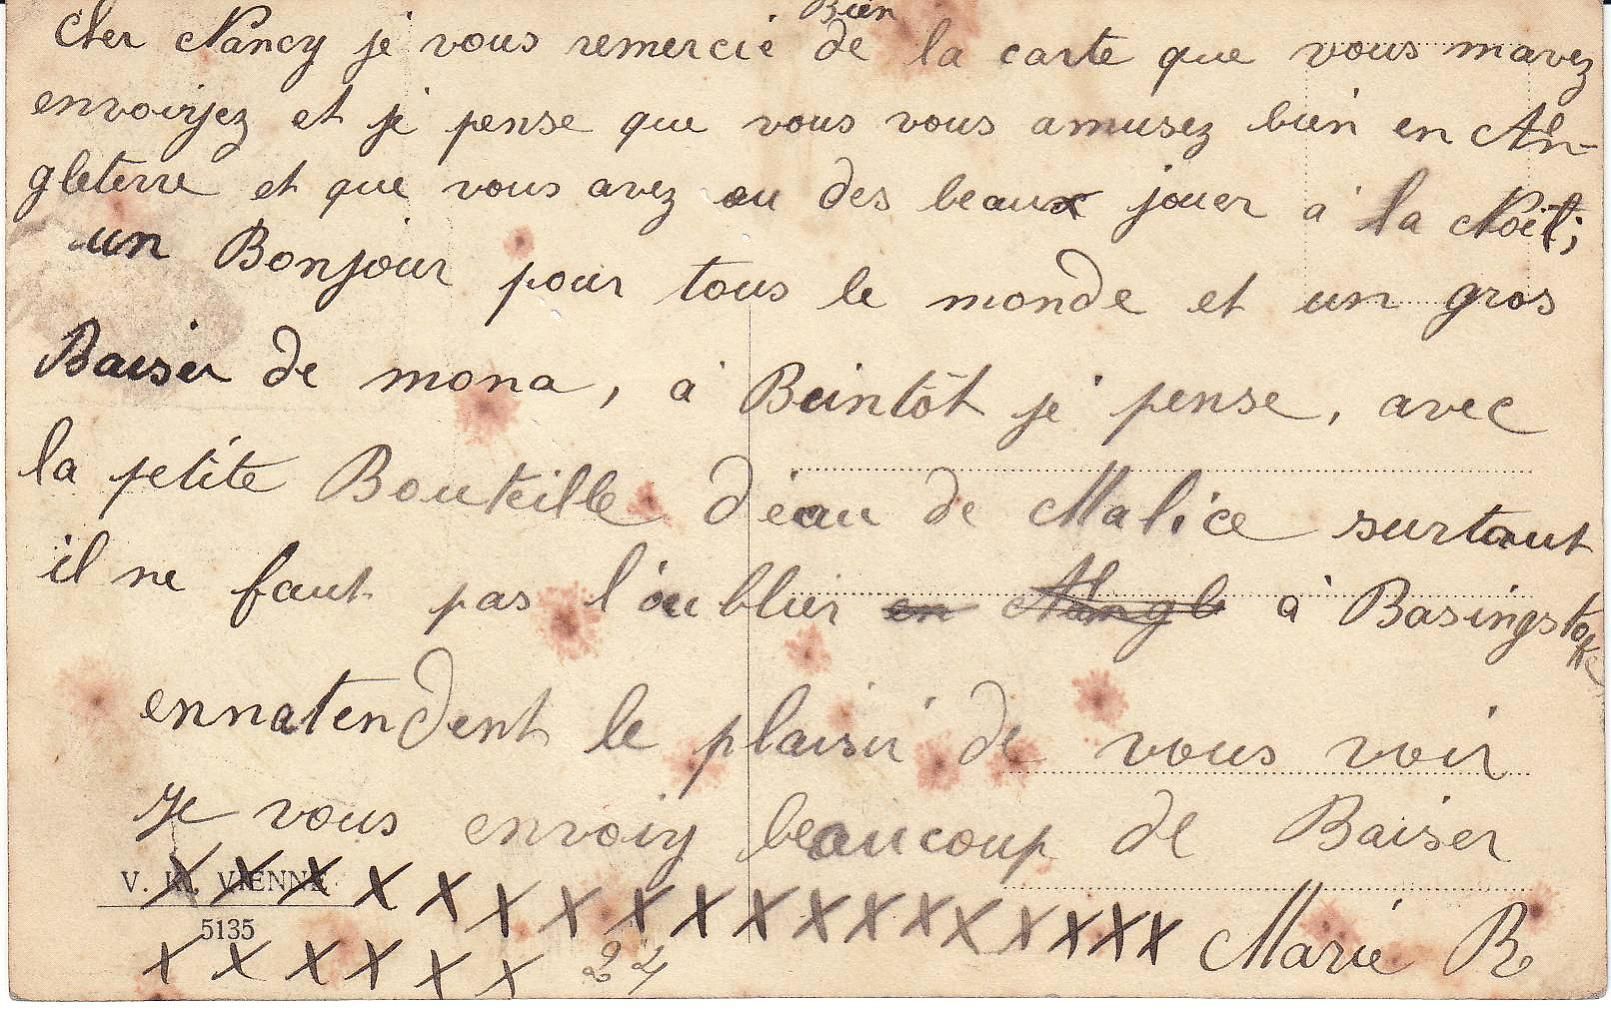 Bien
Cher Nancy je vous remercie de la carte que vous mavez
envoiyez et je pense que vous vous amusez bien en An-
gleterre et que vous avez eu des beaux jouer à la Noël;
un Bonjour pour tous le monde et un gros
Baiser de mona, à Beintôt je pense, avec
la petite Bouteille d'eau de Malice surtout
il ne faut pas l'oublier en Angle à Basingstoke
ennatendent le plaisir de vous voir
Je vous envoiy beaucoup de Baiser
V. K. VIENNE
X X X X X X X X X X X X X X X X X X Marie R
5135
X X X X X X 24